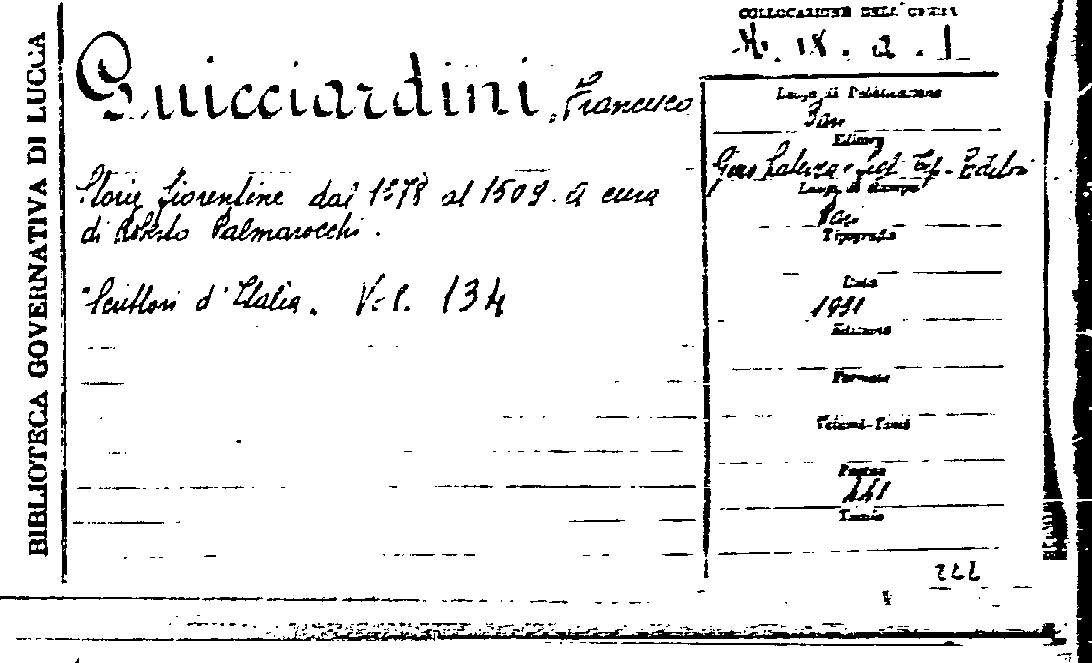 BIBLIOTECA GOVERNATIVA DI LUCCA
Guicciardini, Francesco
Storie fiorentine dal 1378 al 1509. a cura
di Roberto Palmarocchi.
"Scrittori d'Italia. Vol. 134
COLLOCAZIONE DELL'OPERA
IX. a. 1
Luogo di Pubblicazione
Bari
Editore
Gius. Laterza
Luogo di stampa
Bari
Tipografia
Data
1931
Edizione
Formato
Volumi-Tomi
Pagine
Tavole